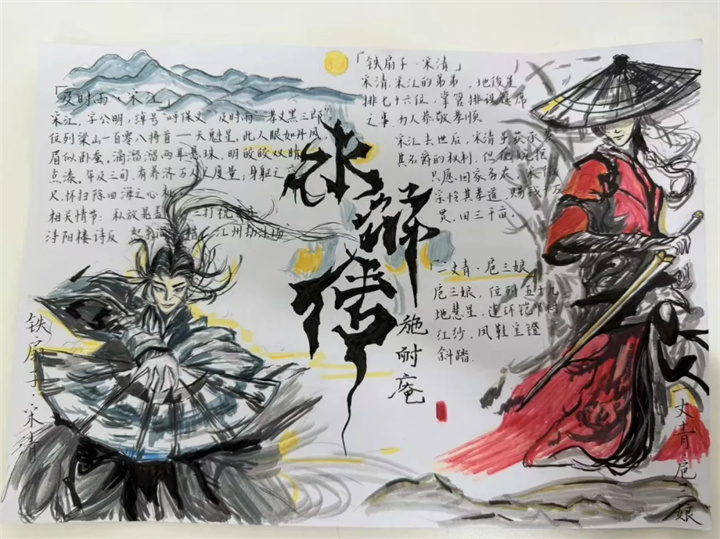 「及时雨·宋江」
宋江,字公明,绰号呼保义,及时雨,孝义黑三郎。
位列梁山一百零八将首——天魁星。此人眼如丹凤,
眉似卧蚕。滴溜溜两耳悬珠,明皎皎双睛
点漆。年及三旬,有养济万人之度量,身躯六
尺,怀扫除四海之心机
相关情节:私放晁盖
浔阳楼诗反 江州劫法场
「铁扇子·宋清」
宋清,宋江的弟弟,地俊星
排七十六位,掌管排设筵席
之事,为人恭敬孝顺
宋江去世后,宋清
其名爵的权利,但
只愿回家务农
宗怜其孝道,赐钱
贯,田三千亩。
水浒传
施耐庵
「一丈青·扈三娘」
扈三娘,位列五十九
地慧星,连环铠
红纱,凤鞋宝镫
斜踏
铁扇子·宋清
一丈青·扈三娘